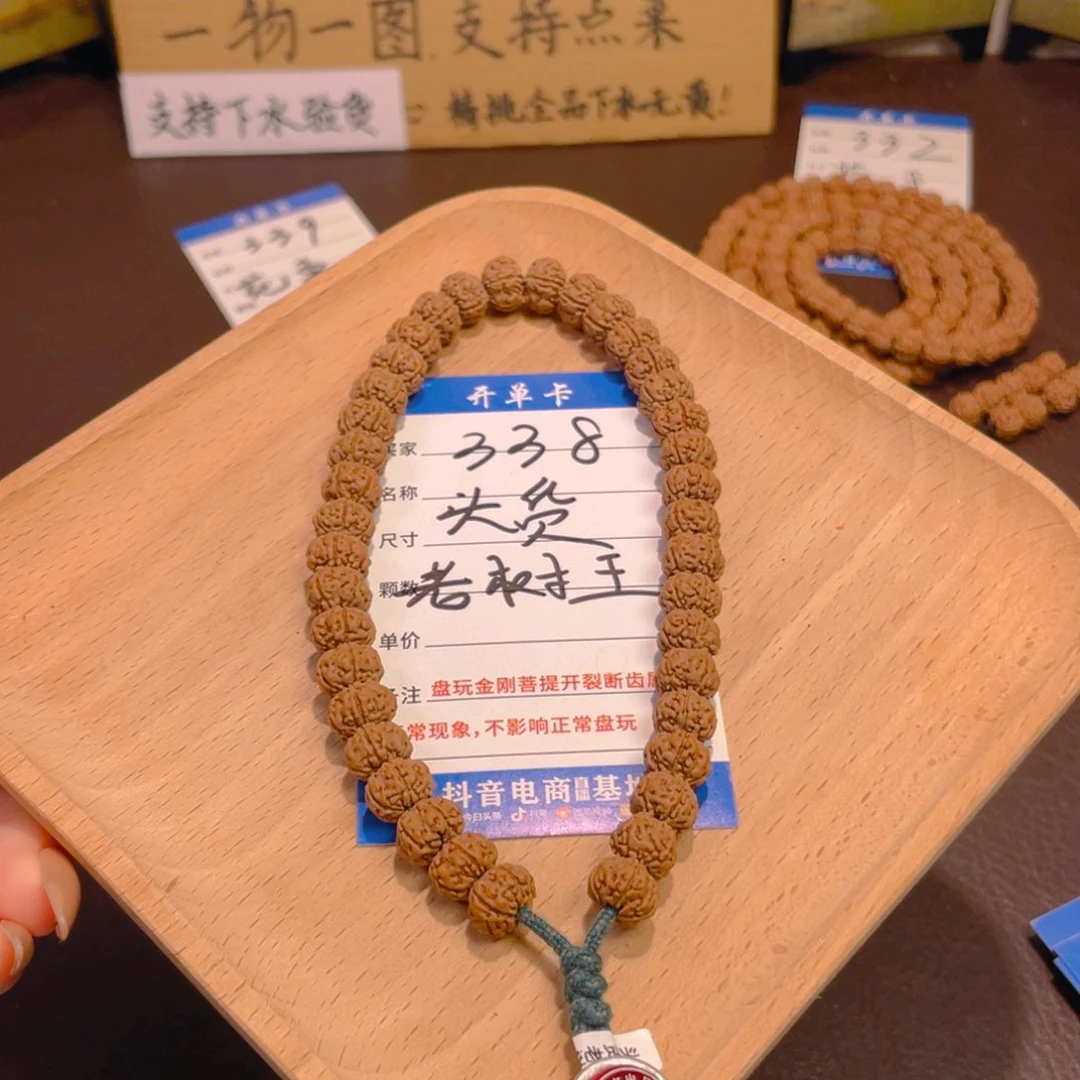 一物一图 支持点采
支持下水验货
精挑全品下水无黄!
332
339
开单卡
买家 338
名称 头货
尺寸
颗数 老树王
单价
备注 盘玩金刚菩提开裂断齿
常现象,不影响正常盘玩
抖音电商直播基地
今日头条 抖音